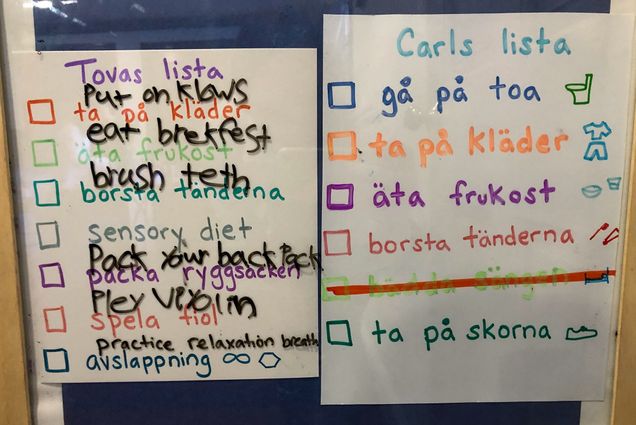 Tovas lista
Put on klaws
ta på kläder
eat brekfest
äta frukost
brush teth
borsta tänderna
sensory diet
Pack your back Pack
packa ryggsäcken
Pley Vixolin
spela fiol
practice relaxation breath
avslappning
Carls lista
gå på toa
ta på kläder
äta frukost
borsta tänderna
bädda sängen
ta på skorna